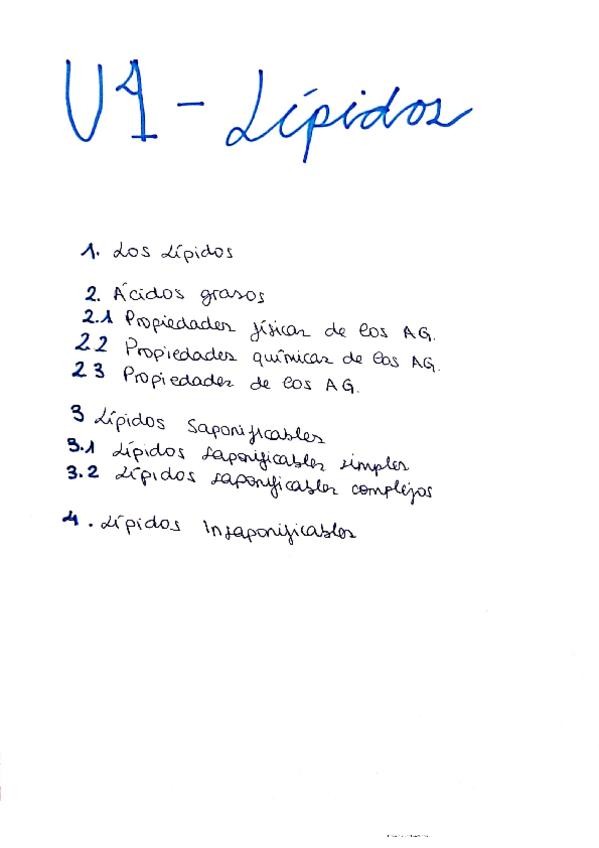 U4 - Lípidos
1. Los Lípidos
2. Ácidos grasos
2.1 Propiedades físicas de los AG.
2 2 Propiedades químicas de los AG.
2 3 Propiedades de los AG.
3 Lípidos Saponificables
3.1 Lípidos saponificables simples
3.2 Lípidos saponificables complejos
4. Lípidos Insaponificables